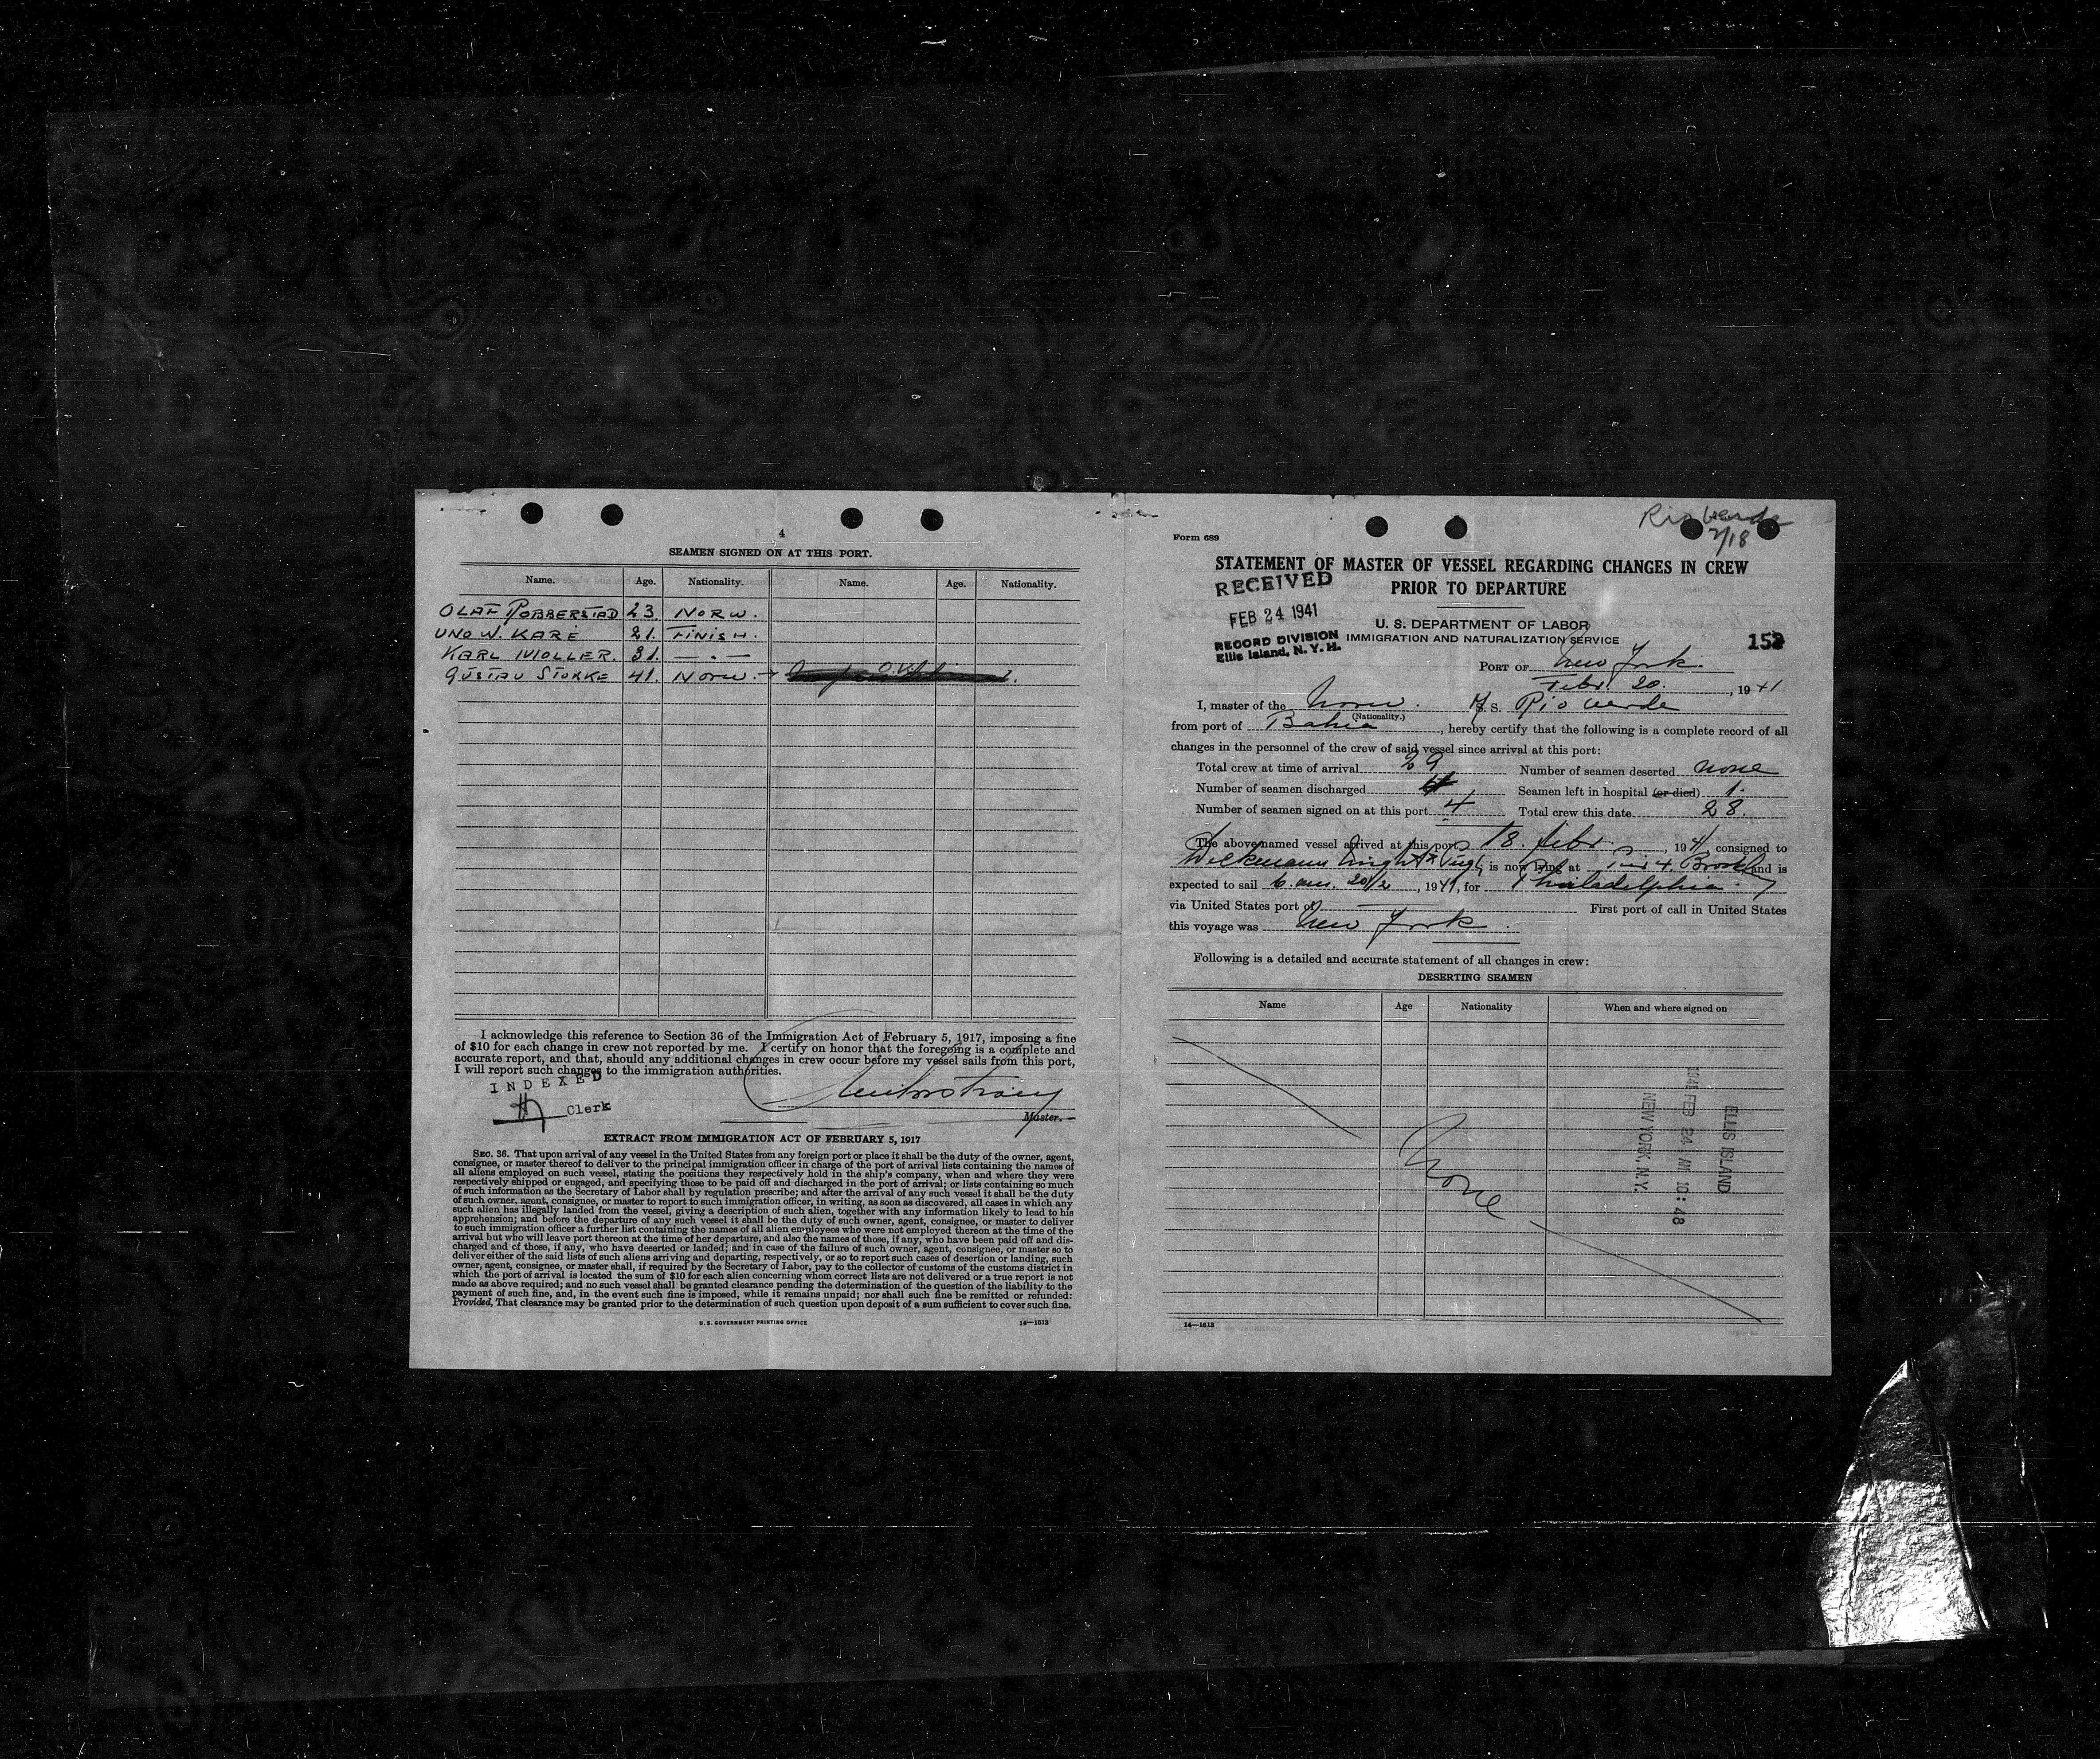 4
SEAMEN SIGNED ON AT THIS PORT.
Name. Age. Nationality. Name. Age. Nationality.
OLAF ROBBERSTAD 23. NORW.
UNO W. KARE 21. FINISH.
KARL MOLLER. 31. — . —
GUSTAV STORKE 41. NORW.
I acknowledge this reference to Section 36 of the Immigration Act of February 5, 1917, imposing a fine
of $10 for each change in crew not reported by me. I certify on honor that the foregoing is a complete and
accurate report, and that, should any additional changes in crew occur before my vessel sails from this port,
I will report such changes to the immigration authorities.
INDEXED
Clerk
Master.
EXTRACT FROM IMMIGRATION ACT OF FEBRUARY 5, 1917
SEC. 36. That upon arrival of any vessel in the United States from any foreign port or place it shall be the duty of the owner, agent,
consignee, or master thereof to deliver to the principal immigration officer in charge of the port of arrival lists containing the names of
all aliens employed on such vessel, stating the positions they respectively hold in the ship's company, when and where they were
respectively shipped or engaged, and specifying those to be paid off and discharged in the port of arrival; or lists containing so much
of such information as the Secretary of Labor shall by regulation prescribe; and after the arrival of any such vessel it shall be the duty
of such owner, agent, consignee, or master to report to such immigration officer, in writing, as soon as discovered, all cases in which any
such alien has illegally landed from the vessel, giving a description of such alien, together with any information likely to lead to his
apprehension; and before the departure of any such vessel it shall be the duty of such owner, agent, consignee, or master to deliver
to such immigration officer a further list containing the names of all alien employees who were not employed thereon at the time of the
arrival but who will leave port thereon at the time of her departure, and also the names of those, if any, who have been paid off and dis-
charged and of those, if any, who have deserted or landed; and in case of the failure of such owner, agent, consignee, or master so to
deliver either of the said lists of such aliens arriving and departing, respectively, or so to report such cases of desertion or landing, such
owner, agent, consignee, or master shall, if required by the Secretary of Labor, pay to the collector of customs of the customs district in
which the port of arrival is located the sum of $10 for each alien concerning whom correct lists are not delivered or a true report is not
made as above required; and no such vessel shall be granted clearance pending the determination of the question of the liability to the
payment of such fine, and, in the event such fine is imposed, while it remains unpaid; nor shall such fine be remitted or refunded:
Provided, That clearance may be granted prior to the determination of such question upon deposit of a sum sufficient to cover such fine.
U. S. GOVERNMENT PRINTING OFFICE 14—1513
Rio Verde
2/18
Form 689
STATEMENT OF MASTER OF VESSEL REGARDING CHANGES IN CREW
PRIOR TO DEPARTURE
RECEIVED
FEB 24 1941
RECORD DIVISION
Ellis Island, N. Y. H.
U. S. DEPARTMENT OF LABOR
IMMIGRATION AND NATURALIZATION SERVICE
153
PORT OF New York.
Febr. 20, 1941
I, master of the Norw. M. S. Rio Verde
(Nationality.)
from port of Bahia, hereby certify that the following is a complete record of all
changes in the personnel of the crew of said vessel since arrival at this port:
Total crew at time of arrival 29 Number of seamen deserted none
Number of seamen discharged 4 Seamen left in hospital (or died) 1.
Number of seamen signed on at this port 4 Total crew this date 28.
The above-named vessel arrived at this port 18. Febr., 1941, consigned to
Wilkmann Wright & Pugh, is now lying at Pier 4. Brookl and is
expected to sail 6. am. 20/2, 1941, for Philadelphia.
via United States port of First port of call in United States
this voyage was New York.
Following is a detailed and accurate statement of all changes in crew:
DESERTING SEAMEN
Name Age Nationality When and where signed on
None
ELLIS ISLAND
1941 FEB 24 AM 10:48
NEW YORK, N.Y.
14—1513